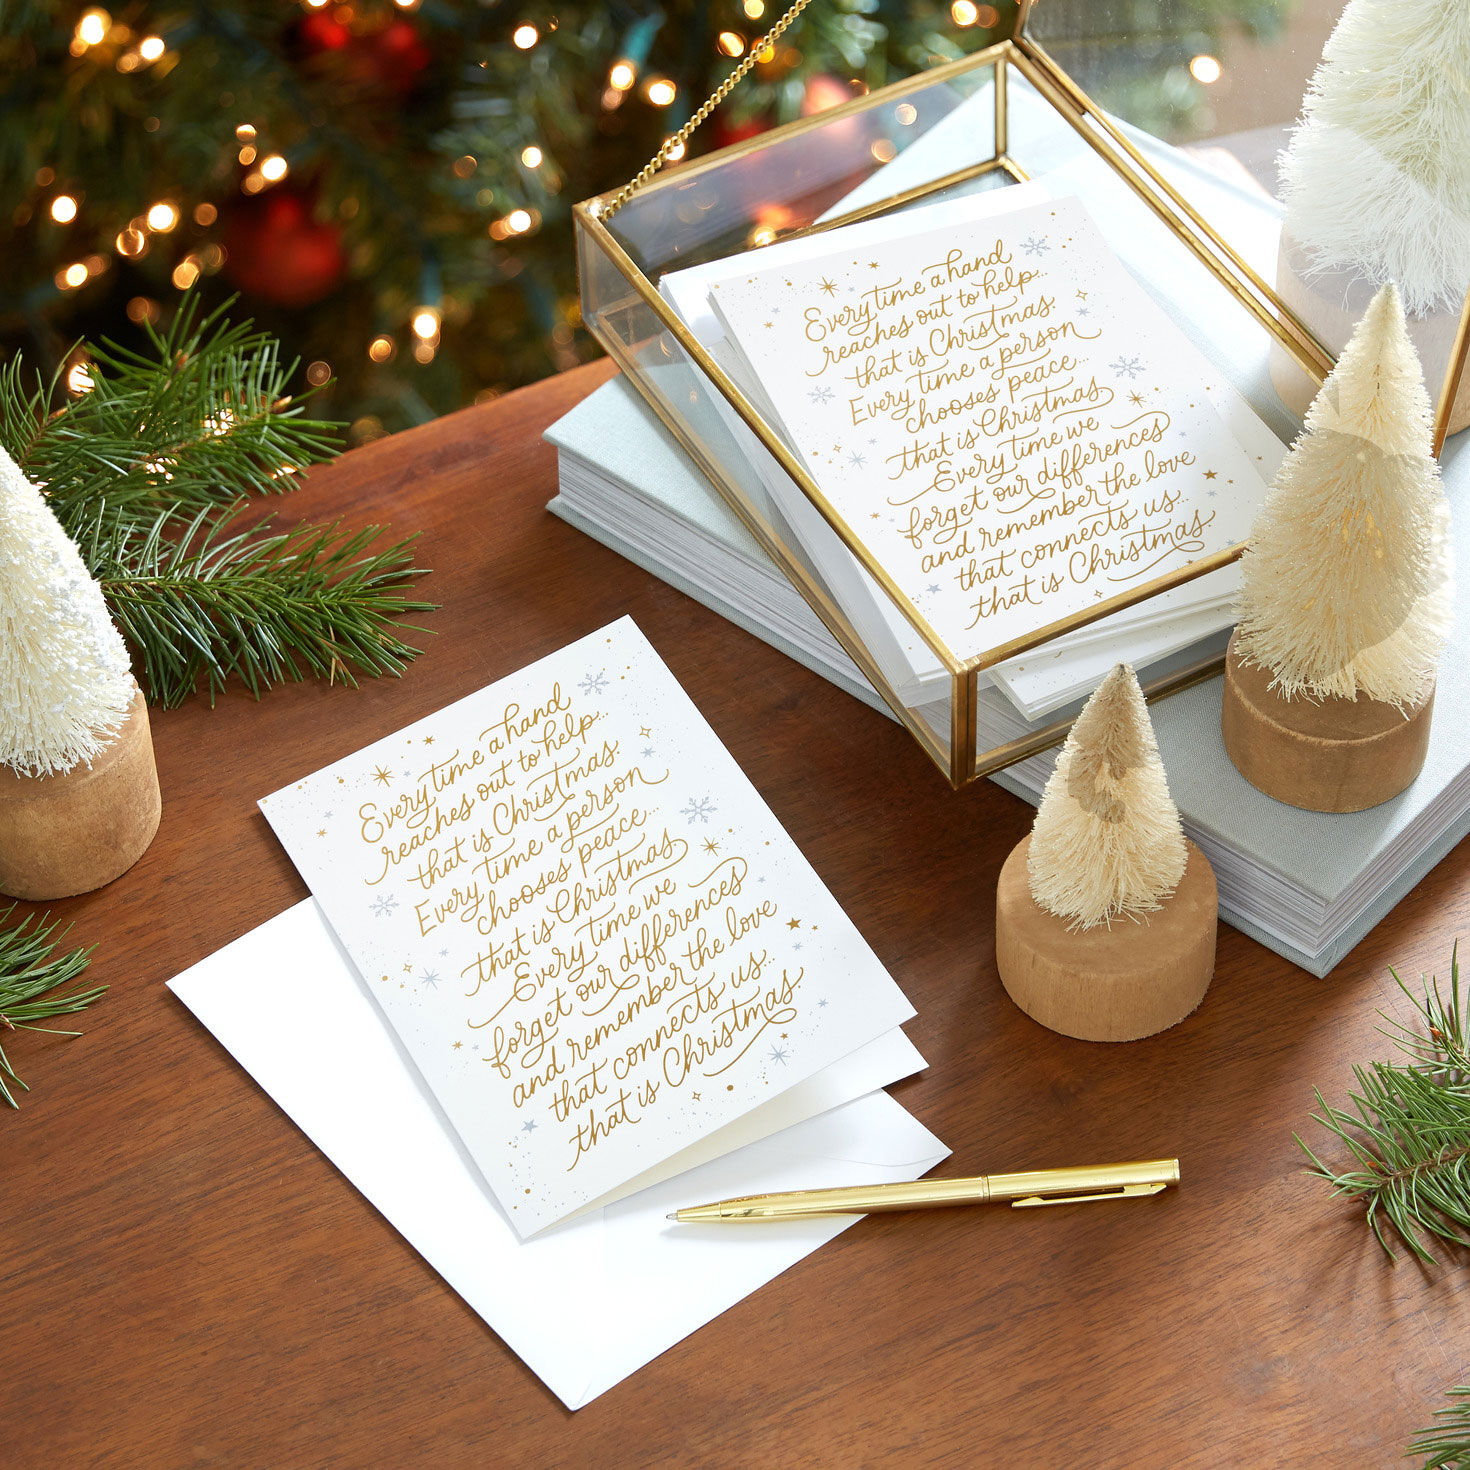 Every time a hand
reaches out to help...
that is Christmas.
Every time a person
chooses peace...
that is Christmas.
Every time we
forget our differences
and remember the love
that connects us...
that is Christmas.
Every time a hand
reaches out to help...
that is Christmas.
Every time a person
chooses peace...
that is Christmas
Every time we
forget our differences
and remember the love
that connects us...
that is Christmas.